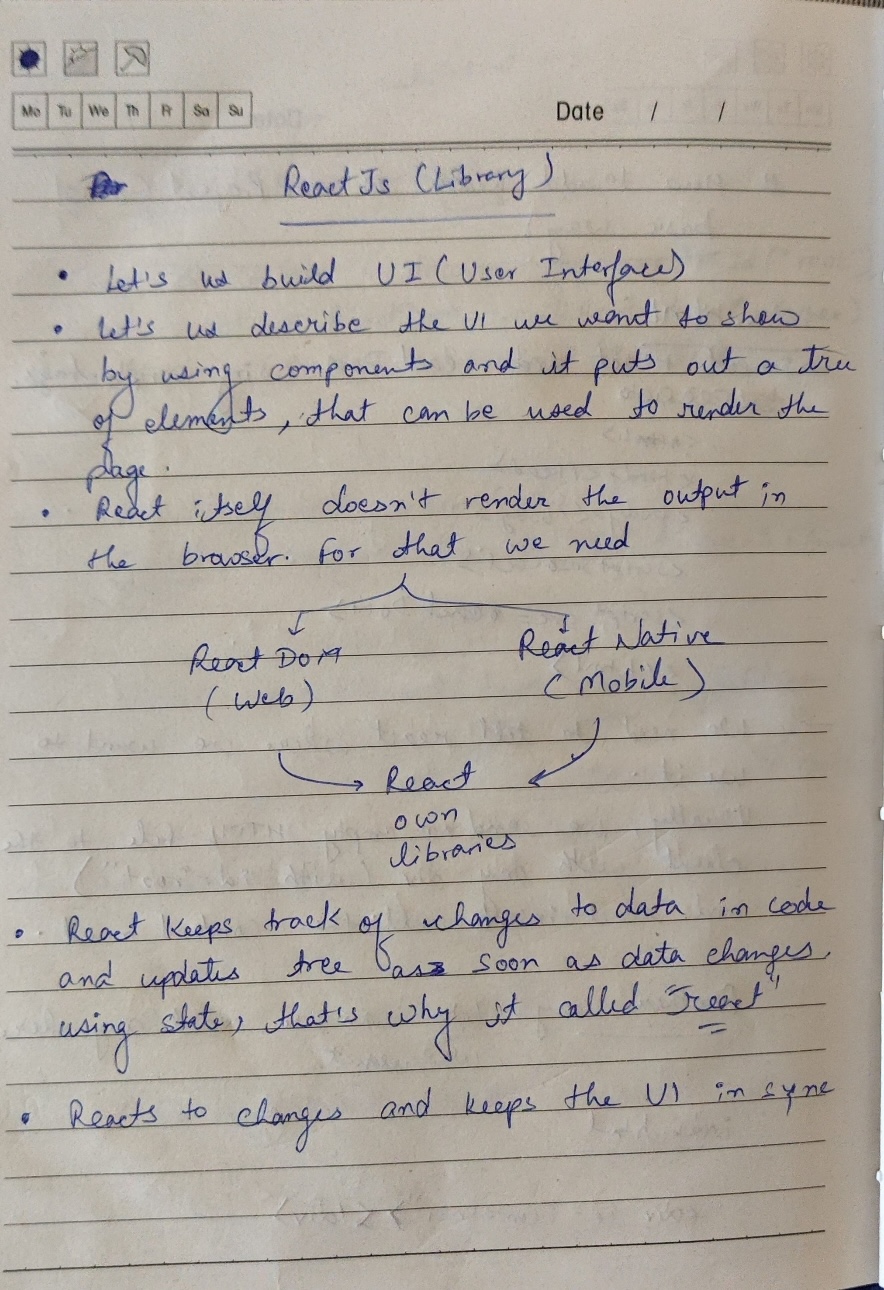 Mo Tu We Th Fr Sa Su
Date / /
React Js (Library)
• Let's us build UI (User Interface)
• Let's us describe the UI we want to show
by using components and it puts out a tree
of elements, that can be used to render the
page.
• React itself doesn't render the output in
the browser. For that we need
React DOM React Native
(Web) (Mobile)
React
own
libraries
• React keeps track of changes to data in code
and updates tree as soon as data changes,
using state, that's why it called "react"
• Reacts to changes and keeps the UI in sync